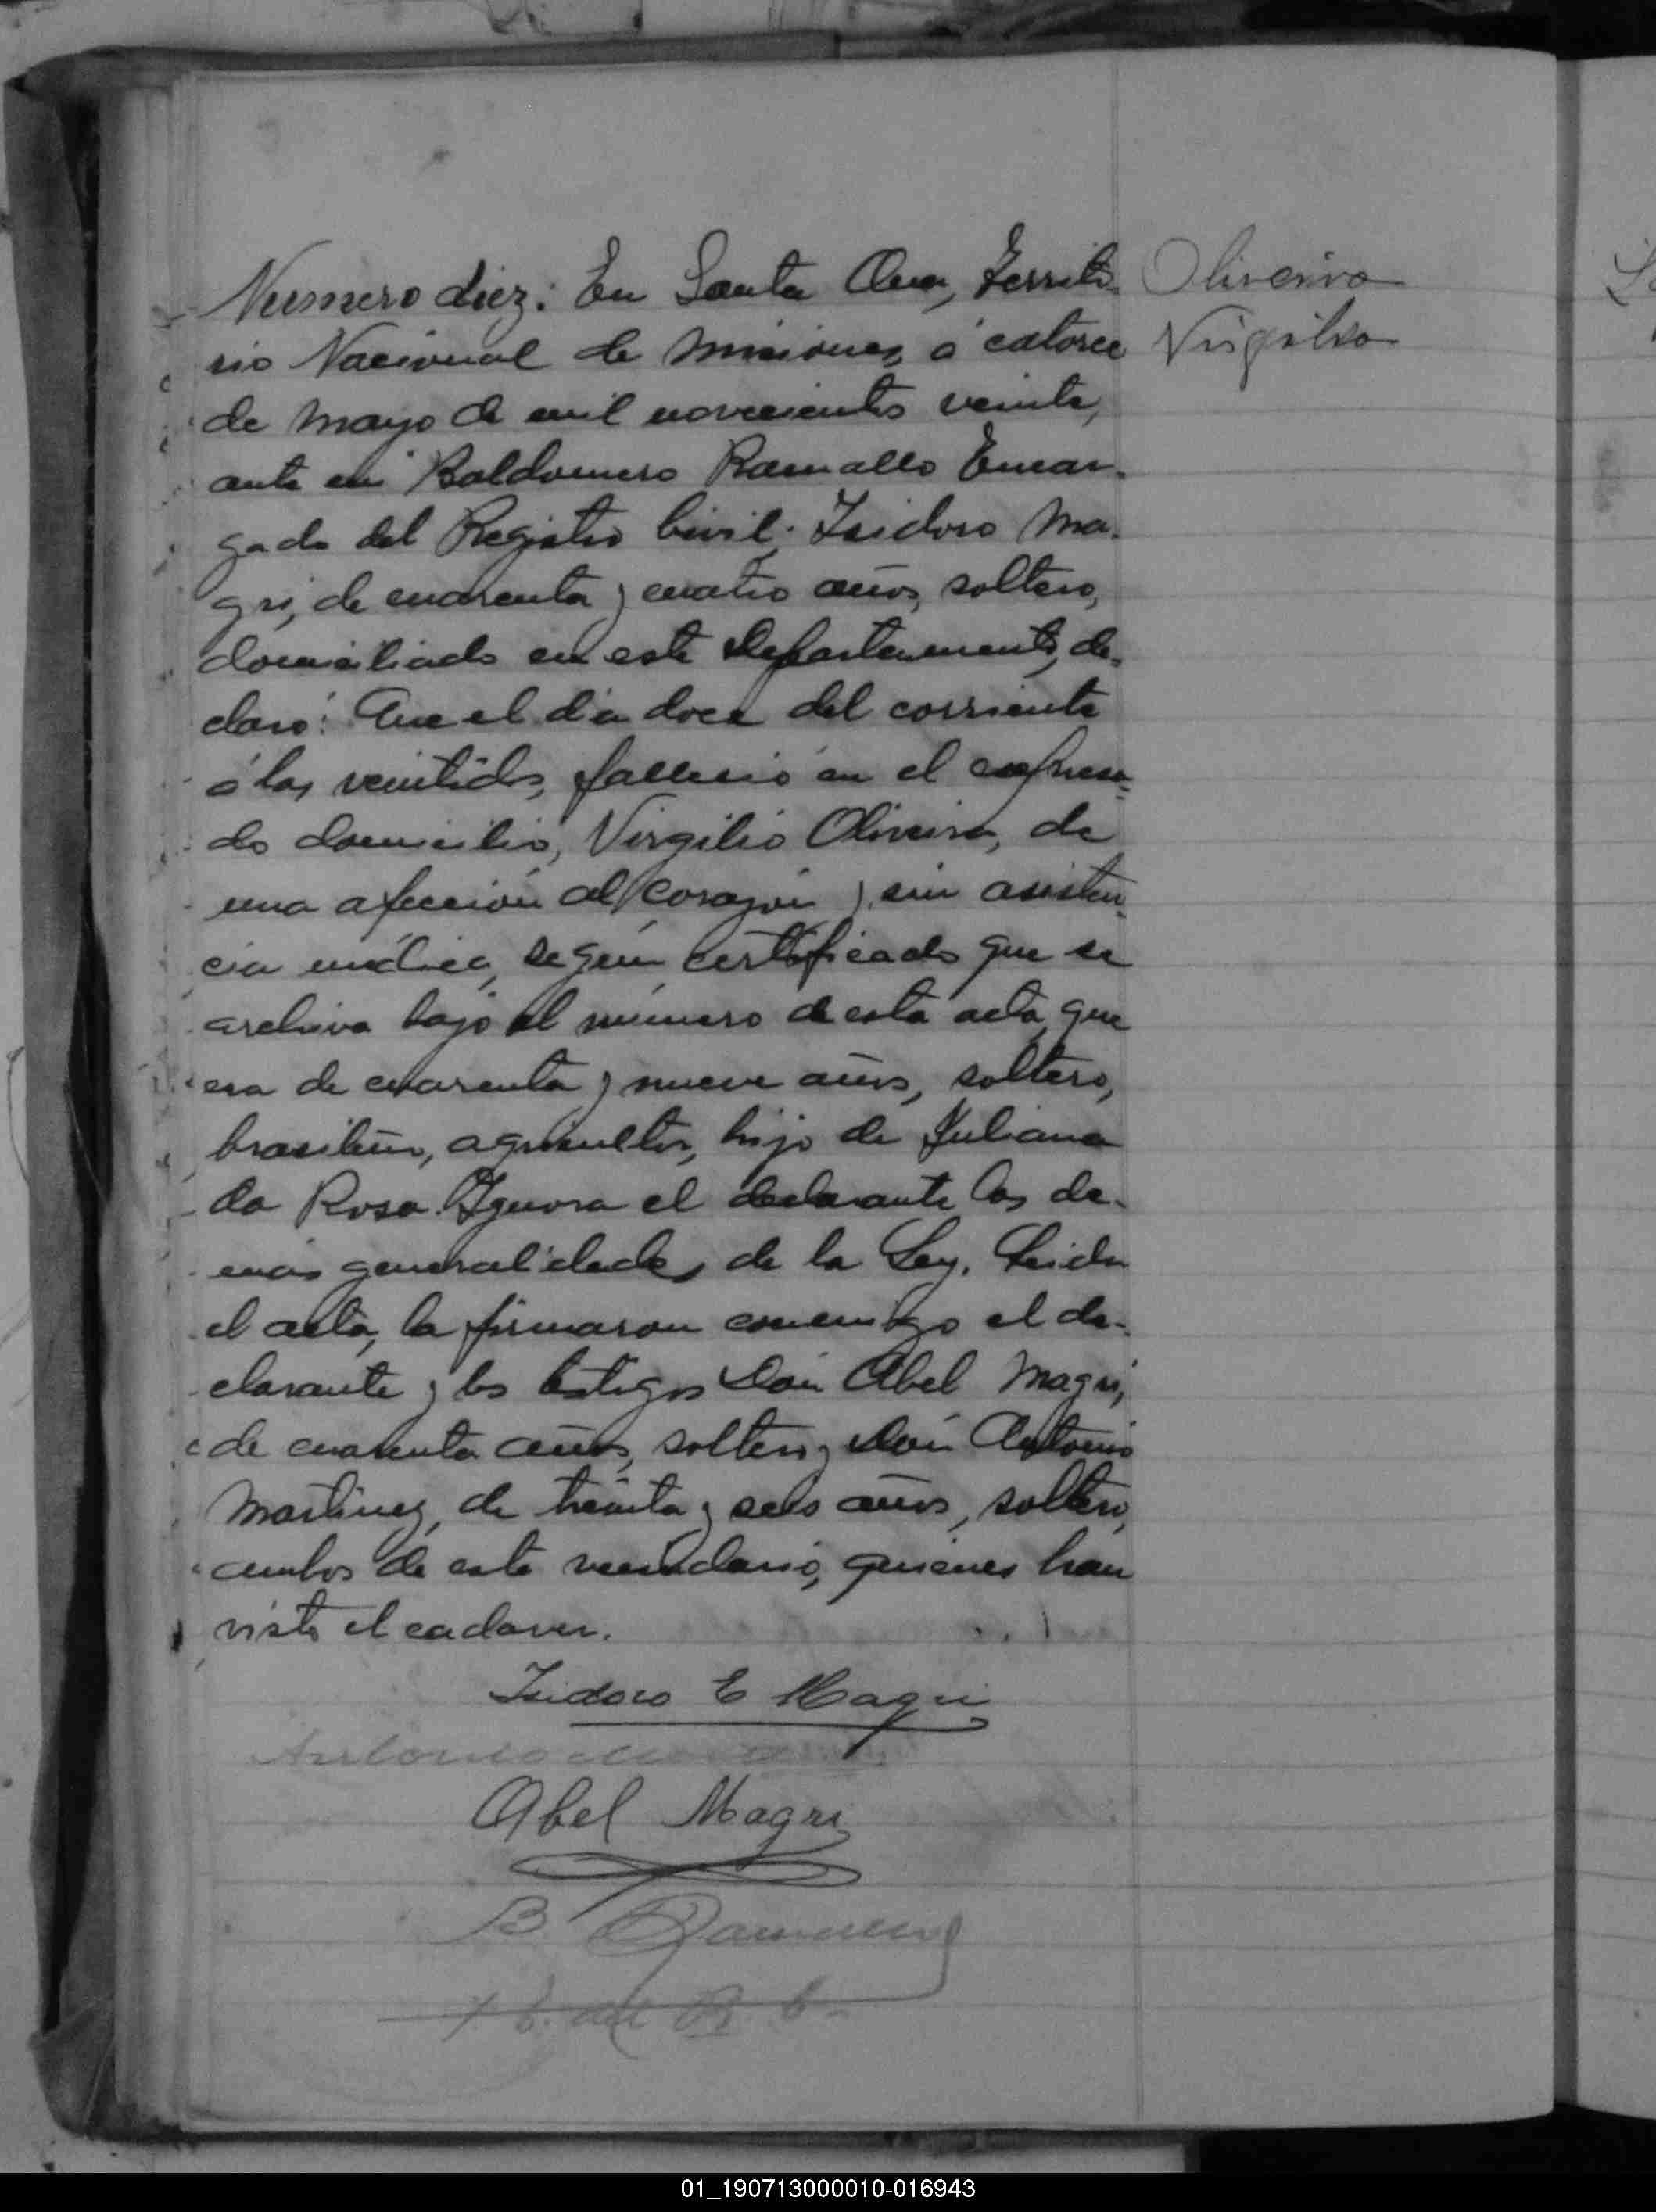 Numero diez: En Santa Ana, Territo-
rio Nacional de Misiones, á catorce
de Mayo de mil novecientos veinte,
ante mi Baldomero Ramallo Encar-
gado del Registro Civil; Isidoro Ma-
gri, de cuarenta y cuatro años, soltero,
domiciliado en este Departamento, de-
claró: Que el día doce del corriente
á las veintidos, falleció en el expresa-
do domicilio, Virgilio Oliveira, de
una afección al corazón y sin asisten-
cia médica, según certificado que se
archiva bajo el número de esta acta, que
era de cuarenta y nueve años, soltero,
brasilero, agricultor, hijo de Juliana
da Rosa. Ignora el declarante las de-
más generalidades de la Ley. Leida
el acta, la firmaron conmigo el de-
clarante y los testigos Don Abel Magri,
de cuarenta años, soltero y Don Antonio
Martinez, de treinta y seis años, soltero,
ambos de este vecindario, quienes han
visto el cadaver.
Oliveira
Virgilio
Isidoro E Magri
Antonio
Abel Magri
B. Ramallo
01_190713000010-016943